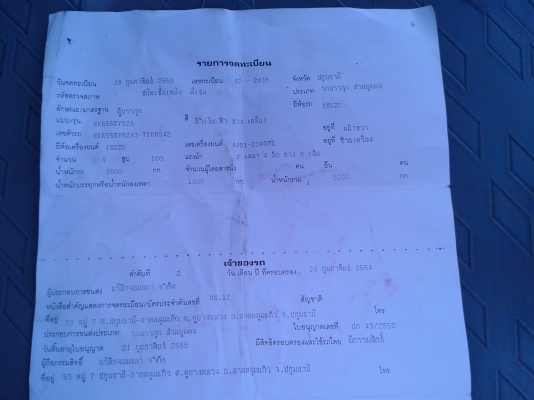 6
รายการจดทะเบียน
วันจดทะเบียน 28 กุมภาพันธ์ 2550 เลขทะเบียน 82 - 2435 จังหวัด ปทุมธานี
รหัสตรวจสภาพ ชนิดเชื้อเพลิง ดีเซล ประเภท รถบรรทุก ส่วนบุคคล
ลักษณะ/มาตรฐาน ตู้บรรทุก ยี่ห้อรถ ISUZU
แบบ/รุ่น สี ฟ้า ขาว เหลือง
เลขตัวรถ อยู่ที่
ยี่ห้อเครื่องยนต์ ISUZU เลขเครื่องยนต์ อยู่ที่ ซ้ายเครื่อง
จำนวน 4 สูบ 100 แรงม้า 2 เพลา 4 ล้อ ยาง 6 เส้น
น้ำหนักรถ 3600 กก. จำนวนผู้โดยสารนั่ง คน ยืน คน
น้ำหนักบรรทุกหรือน้ำหนักลงเพลา 1600 กก. น้ำหนักรวม 5200 กก.
เจ้าของรถ
ลำดับที่ 2 วัน เดือน ปี ที่ครอบครอง 24 กุมภาพันธ์ 2554
ผู้ประกอบการขนส่ง
หนังสือสำคัญแสดงการจดทะเบียน/บัตรประจำตัวเลขที่ สัญชาติ
ที่อยู่ 53 หมู่ 7 ถ.ปทุมธานี-ลาดหลุมแก้ว ต.คูบางหลวง อ.ลาดหลุมแก้ว จ.ปทุมธานี โทร
ประกอบการขนส่งประเภท รถบรรทุก ส่วนบุคคล ใบอนุญาตเลขที่ ปท 43/2550
วันสิ้นอายุใบอนุญาต 21 กุมภาพันธ์ 2555 มีสิทธิครอบครองและใช้รถโดย มีกรรมสิทธิ์
ผู้ถือกรรมสิทธิ์
ที่อยู่ 53 หมู่ 7 ถ.ปทุมธานี-ลาดหลุมแก้ว ต.คูบางหลวง อ.ลาดหลุมแก้ว จ.ปทุมธานี โทร